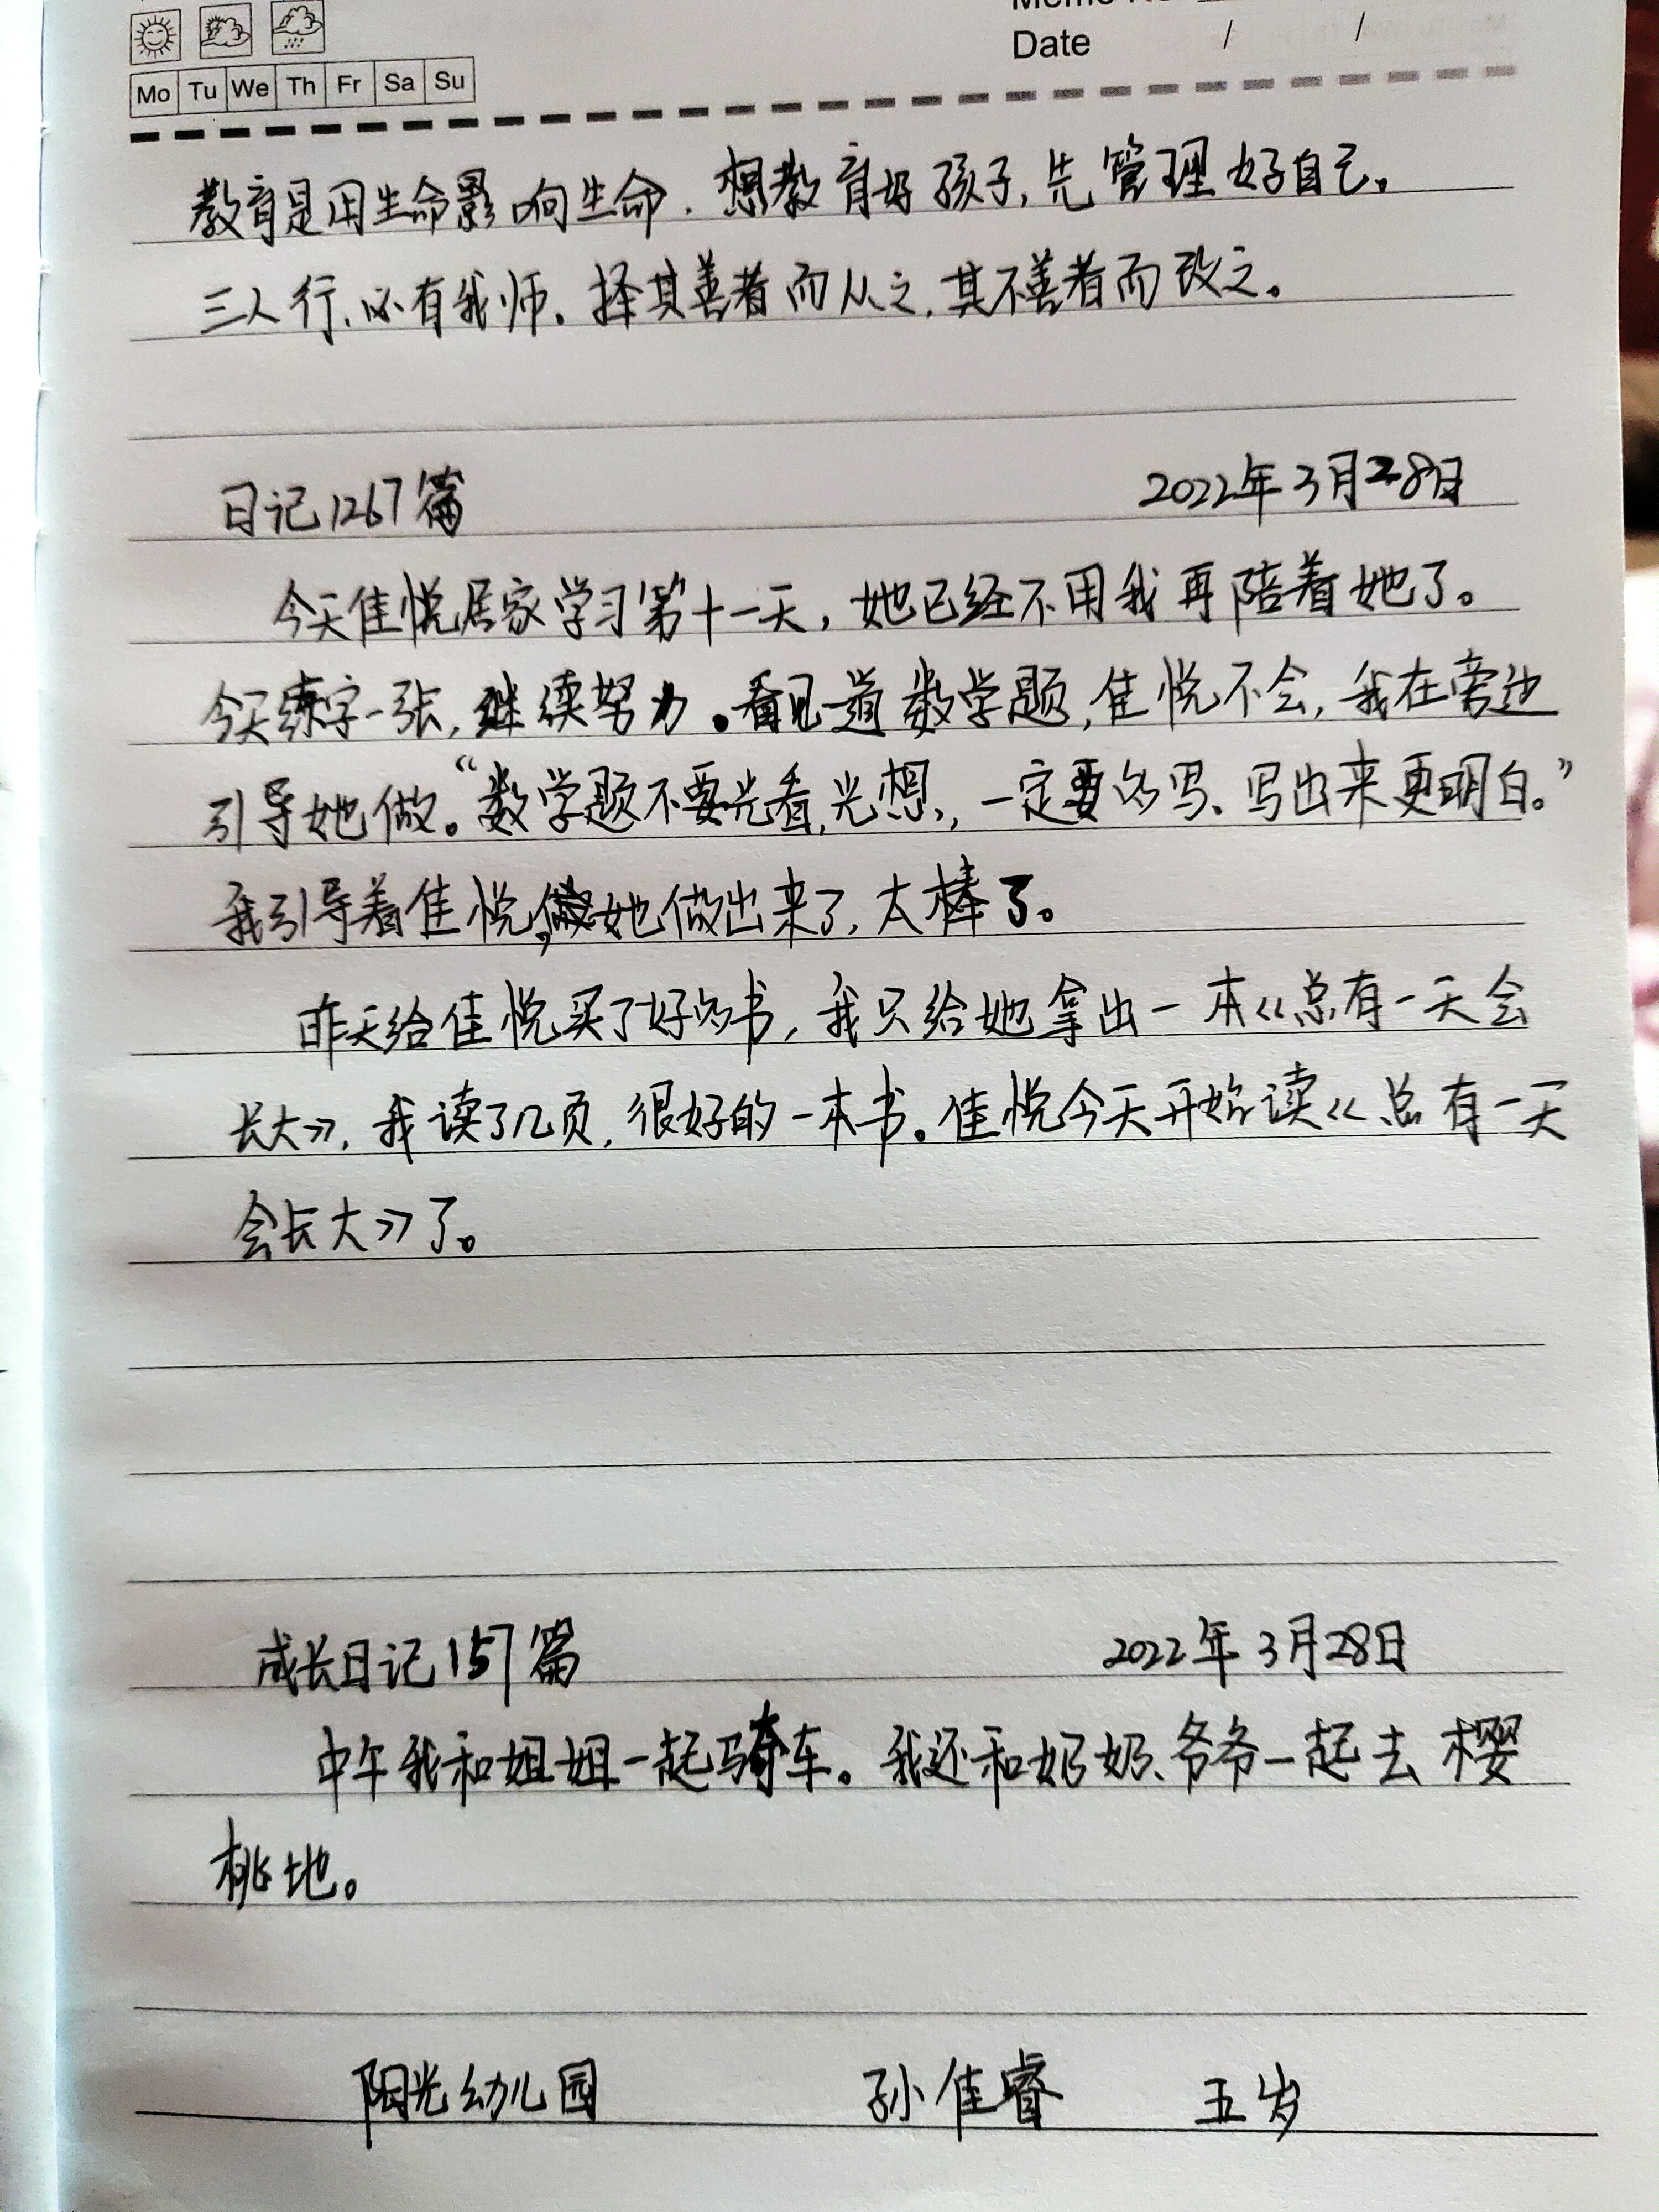 Date / /
Mo Tu We Th Fr Sa Su
教育是用生命影响生命.想教育好孩子,先管理好自己。
三人行,必有我师。择其善者而从之,其不善者而改之。
日记1267篇 2022年3月28日
今天佳悦居家学习第十一天,她已经不用我再陪着她了。
今天练字一张,继续努力。看见一道数学题,佳悦不会,我在旁边
引导她做。“数学题不要光看,光想,一定要多写、写出来更明白。”
我引导着佳悦,她做出来了,太棒了。
昨天给佳悦买了好多书,我只给她拿出一本《总有一天会
长大》,我读了几页,很好的一本书。佳悦今天开始读《总有一天
会长大》了。
成长日记157篇 2022年3月28日
中午我和姐姐一起骑车。我还和奶奶、爷爷一起去樱
桃地。
阳光幼儿园 孙佳睿 五岁